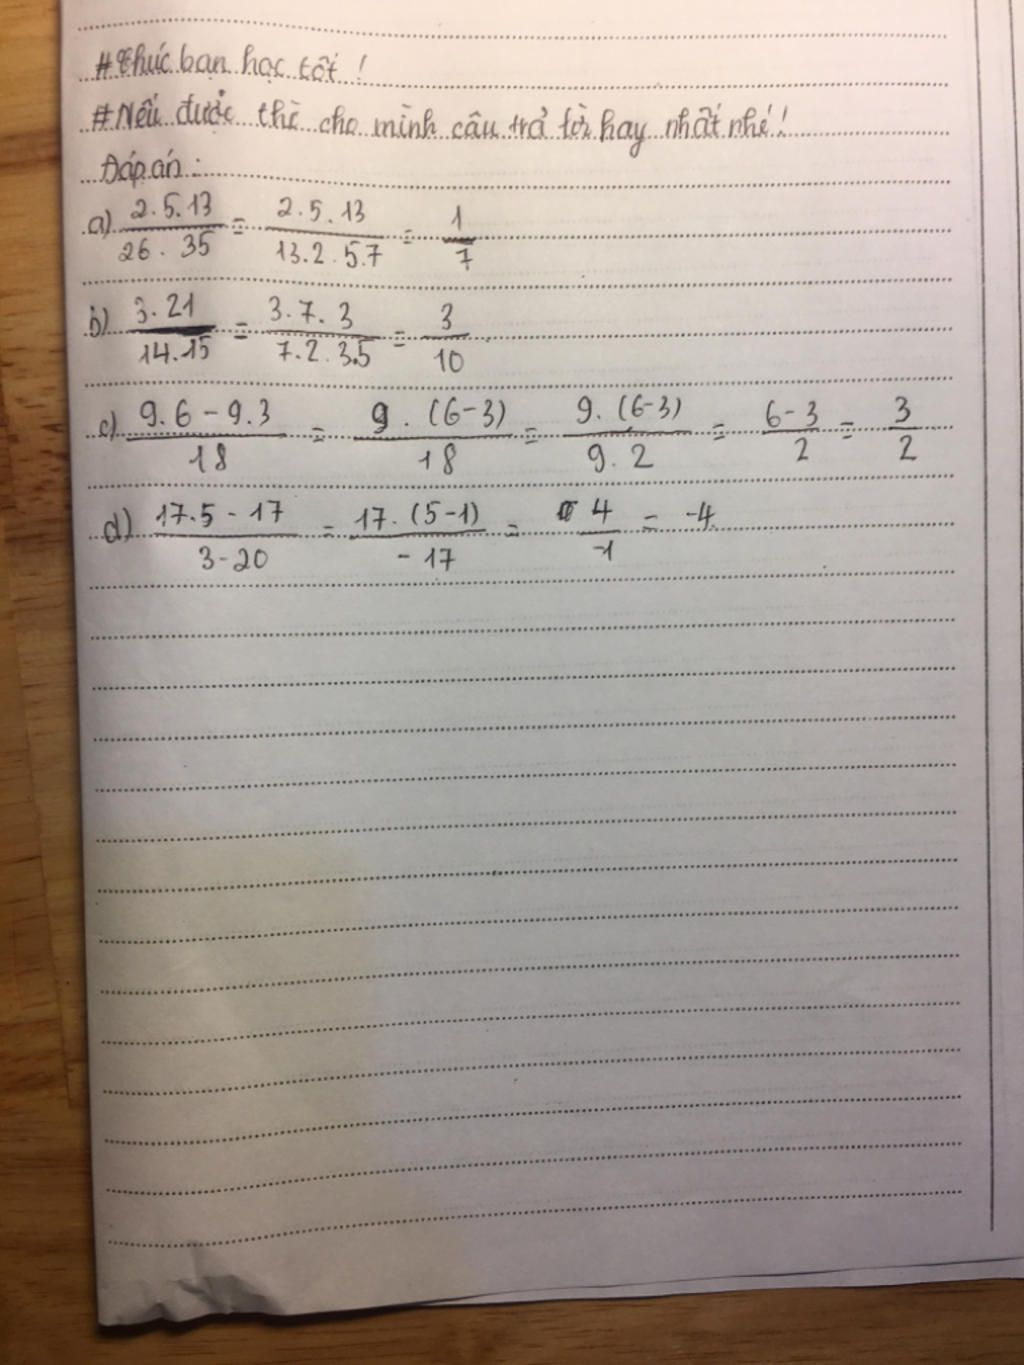 #Chúc bạn học tốt!
#Nếu được thì cho mình câu trả lời hay nhất nhé!
Đáp án:
a) 2.5.13/26.35 = 2.5.13/13.2.5.7 = 1/7
b) 3.21/14.15 = 3.7.3/7.2.3.5 = 3/10
c) 9.6-9.3/18 = 9.(6-3)/18 = 9.(6-3)/9.2 = 6-3/2 = 3/2
d) 17.5-17/3-20 = 17.(5-1)/-17 = 4/-1 = -4